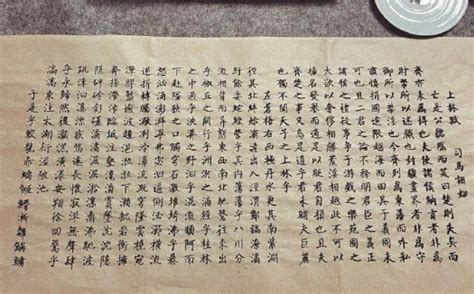 上林賦
司馬相如
亡是公听然而笑曰楚則失矣而
齊亦未為得也夫使諸侯納貢者非為
財幣所以述職也封疆畫界者非為守
禦所以禁淫也今齊列為東藩而外私
肅慎捐國踰限越海而田其於義固未
可也且二君之論不務明君臣之義正
諸侯之禮徒事爭于游戲之樂苑囿之
大欲以奢侈相勝荒淫相越此不可以
揚名發譽而適足以貶君自損也且夫
齊楚之事又烏足道乎君未睹夫巨麗
也獨不聞天子之上林乎
左蒼梧右西極丹水更其南紫淵
徑其北終始灞滻出入涇渭酆鎬潦潏
紆餘委蛇經營乎其內蕩蕩乎八川分
流相背而異態東西南北馳騖往來出
乎椒丘之闕行乎洲淤之浦經乎桂林
之中過乎泱漭之野汨乎混流順阿而
下赴隘陿之口觸穹石激堆埼沸乎暴
怒洶涌澎湃滭弗宓汩偪側泌瀄橫流
逆折轉騰潎洌滂濞沆溉穹隆雲橈宛
潬膠盭踰波趨浥涖涖下瀨批巖衝擁
奔揚滯沛臨坻注壑瀺灂霣墜沈沈隱
隱砰磅訇磕潏潏淈淈湁潗鼎沸馳波
跳沫汩㴔漂疾悠遠長懷寂漻無聲肆
乎永歸然後灝溔潢漾安翔徐回翯乎
滈滈東注太湖衍溢陂池
于是乎蛟龍赤螭䱭䲛漸離